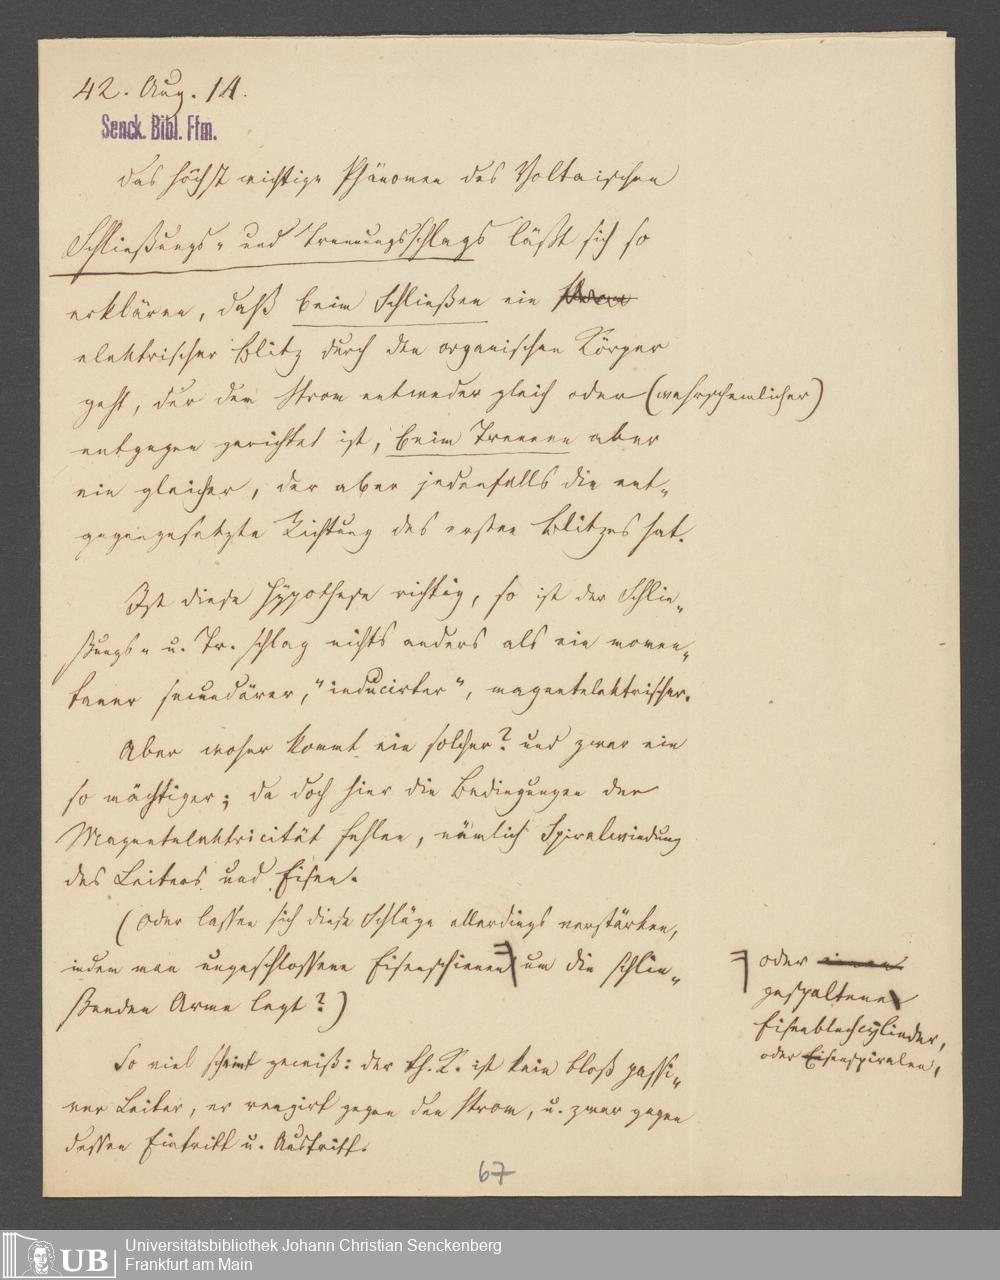 42. Aug. 14.
Senck. Bibl. Ffm.
Das höchst wichtige Phänomen des Voltaischen
Schließungs- und Trennungsschlags läßt sich so
erklären, daß beim Schließen ein Strom
elektrischer Blitz durch den organischen Körper
geht, der dem Strom entweder gleich oder (wahrscheinlicher)
entgegen gerichtet ist, beim Trennen aber
ein gleicher, der aber jedenfalls die ent-
gegengesetzte Richtung des ersten Blitzes hat.
Ist diese Hypothese richtig, so ist der Schlie-
ßungs- u. Tr. schlag nichts anders als ein momen-
taner secundärer, "inducirter", magnetelektrischer.
Aber woher kommt ein solcher? und zwar ein
so mächtiger; da doch hier die Bedingungen der
Magnetelektricität fehlen, nämlich Spiralwindung
des Leiters und Eisen.
(Oder lassen sich diese Schläge allerdings verstärken,
indem man ungeschlossene Eisenschienen um die schlie-
ßenden Arme legt?)
oder einen
gespaltene
Eisenblechcylinder,
oder Eisenspiralen,
So viel scheint gewiß: der th. K. ist kein bloß passi-
ver Leiter, er reagirt gegen den Strom, u. zwar gegen
dessen Eintritt u. Austritt.
67
UB
Universitätsbibliothek Johann Christian Senckenberg
Frankfurt am Main